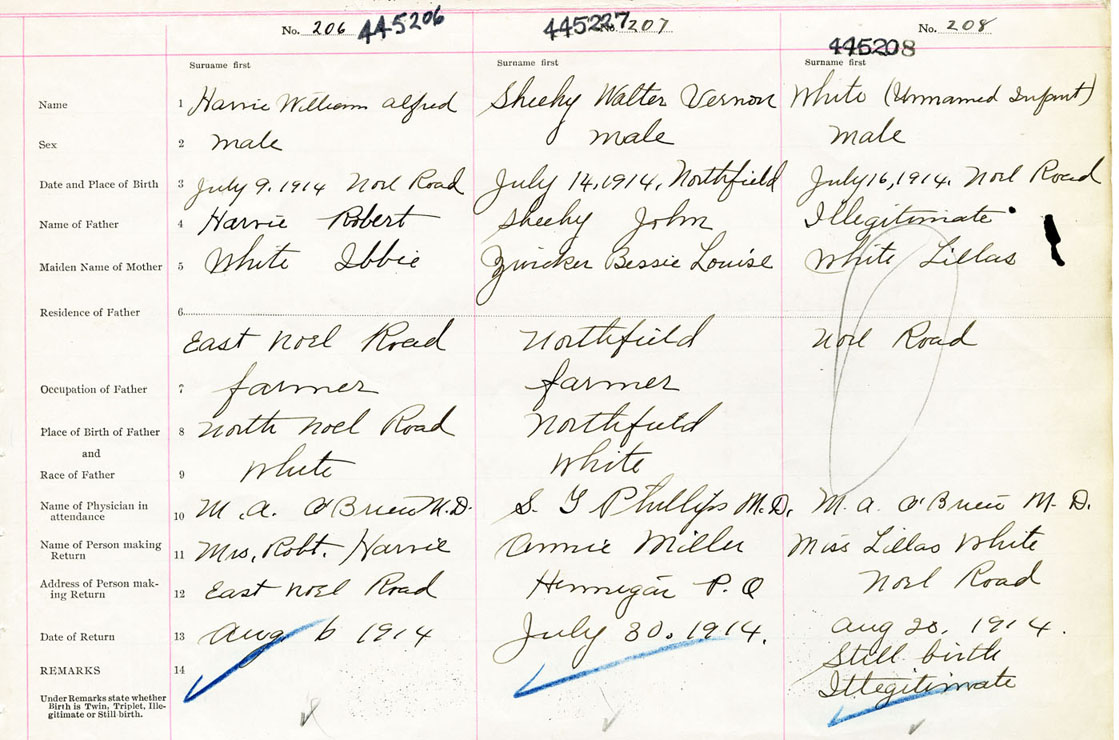 No. 206 445206 445227 No. 207 No. 208
445208
Surname first Surname first Surname first
Name 1 Harvie William Alfred Sheehy Walter Vernon White (Unnamed Infant)
Sex 2 male male male
Date and Place of Birth 3 July 9. 1914 Noel Road July 14, 1914. Northfield July 16, 1914. Noel Road
Name of Father 4 Harvie Robert Sheehy John Illegitimate
Maiden Name of Mother 5 White Ibbie Zwicker Bessie Louise White Lillas
Residence of Father 6
East Noel Road Northfield Noel Road
Occupation of Father 7 farmer farmer
Place of Birth of Father 8 North Noel Road Northfield
and
Race of Father 9 White White
Name of Physician in
attendance 10 M. A. O'Brien M.D. S. G Phillips M.D. M. A. O'Brien M. D.
Name of Person making
Return 11 Mrs. Robt. Harvie Annie Miller Miss Lillas White
Address of Person mak-
ing Return 12 East Noel Road Hennigar P. O Noel Road
Date of Return 13 Aug 6 1914 July 30. 1914. Aug 20, 1914.
REMARKS 14 Still birth
Illegitimate
Under Remarks state whether
Birth is Twin, Triplet, Ille-
gitimate or Still birth.